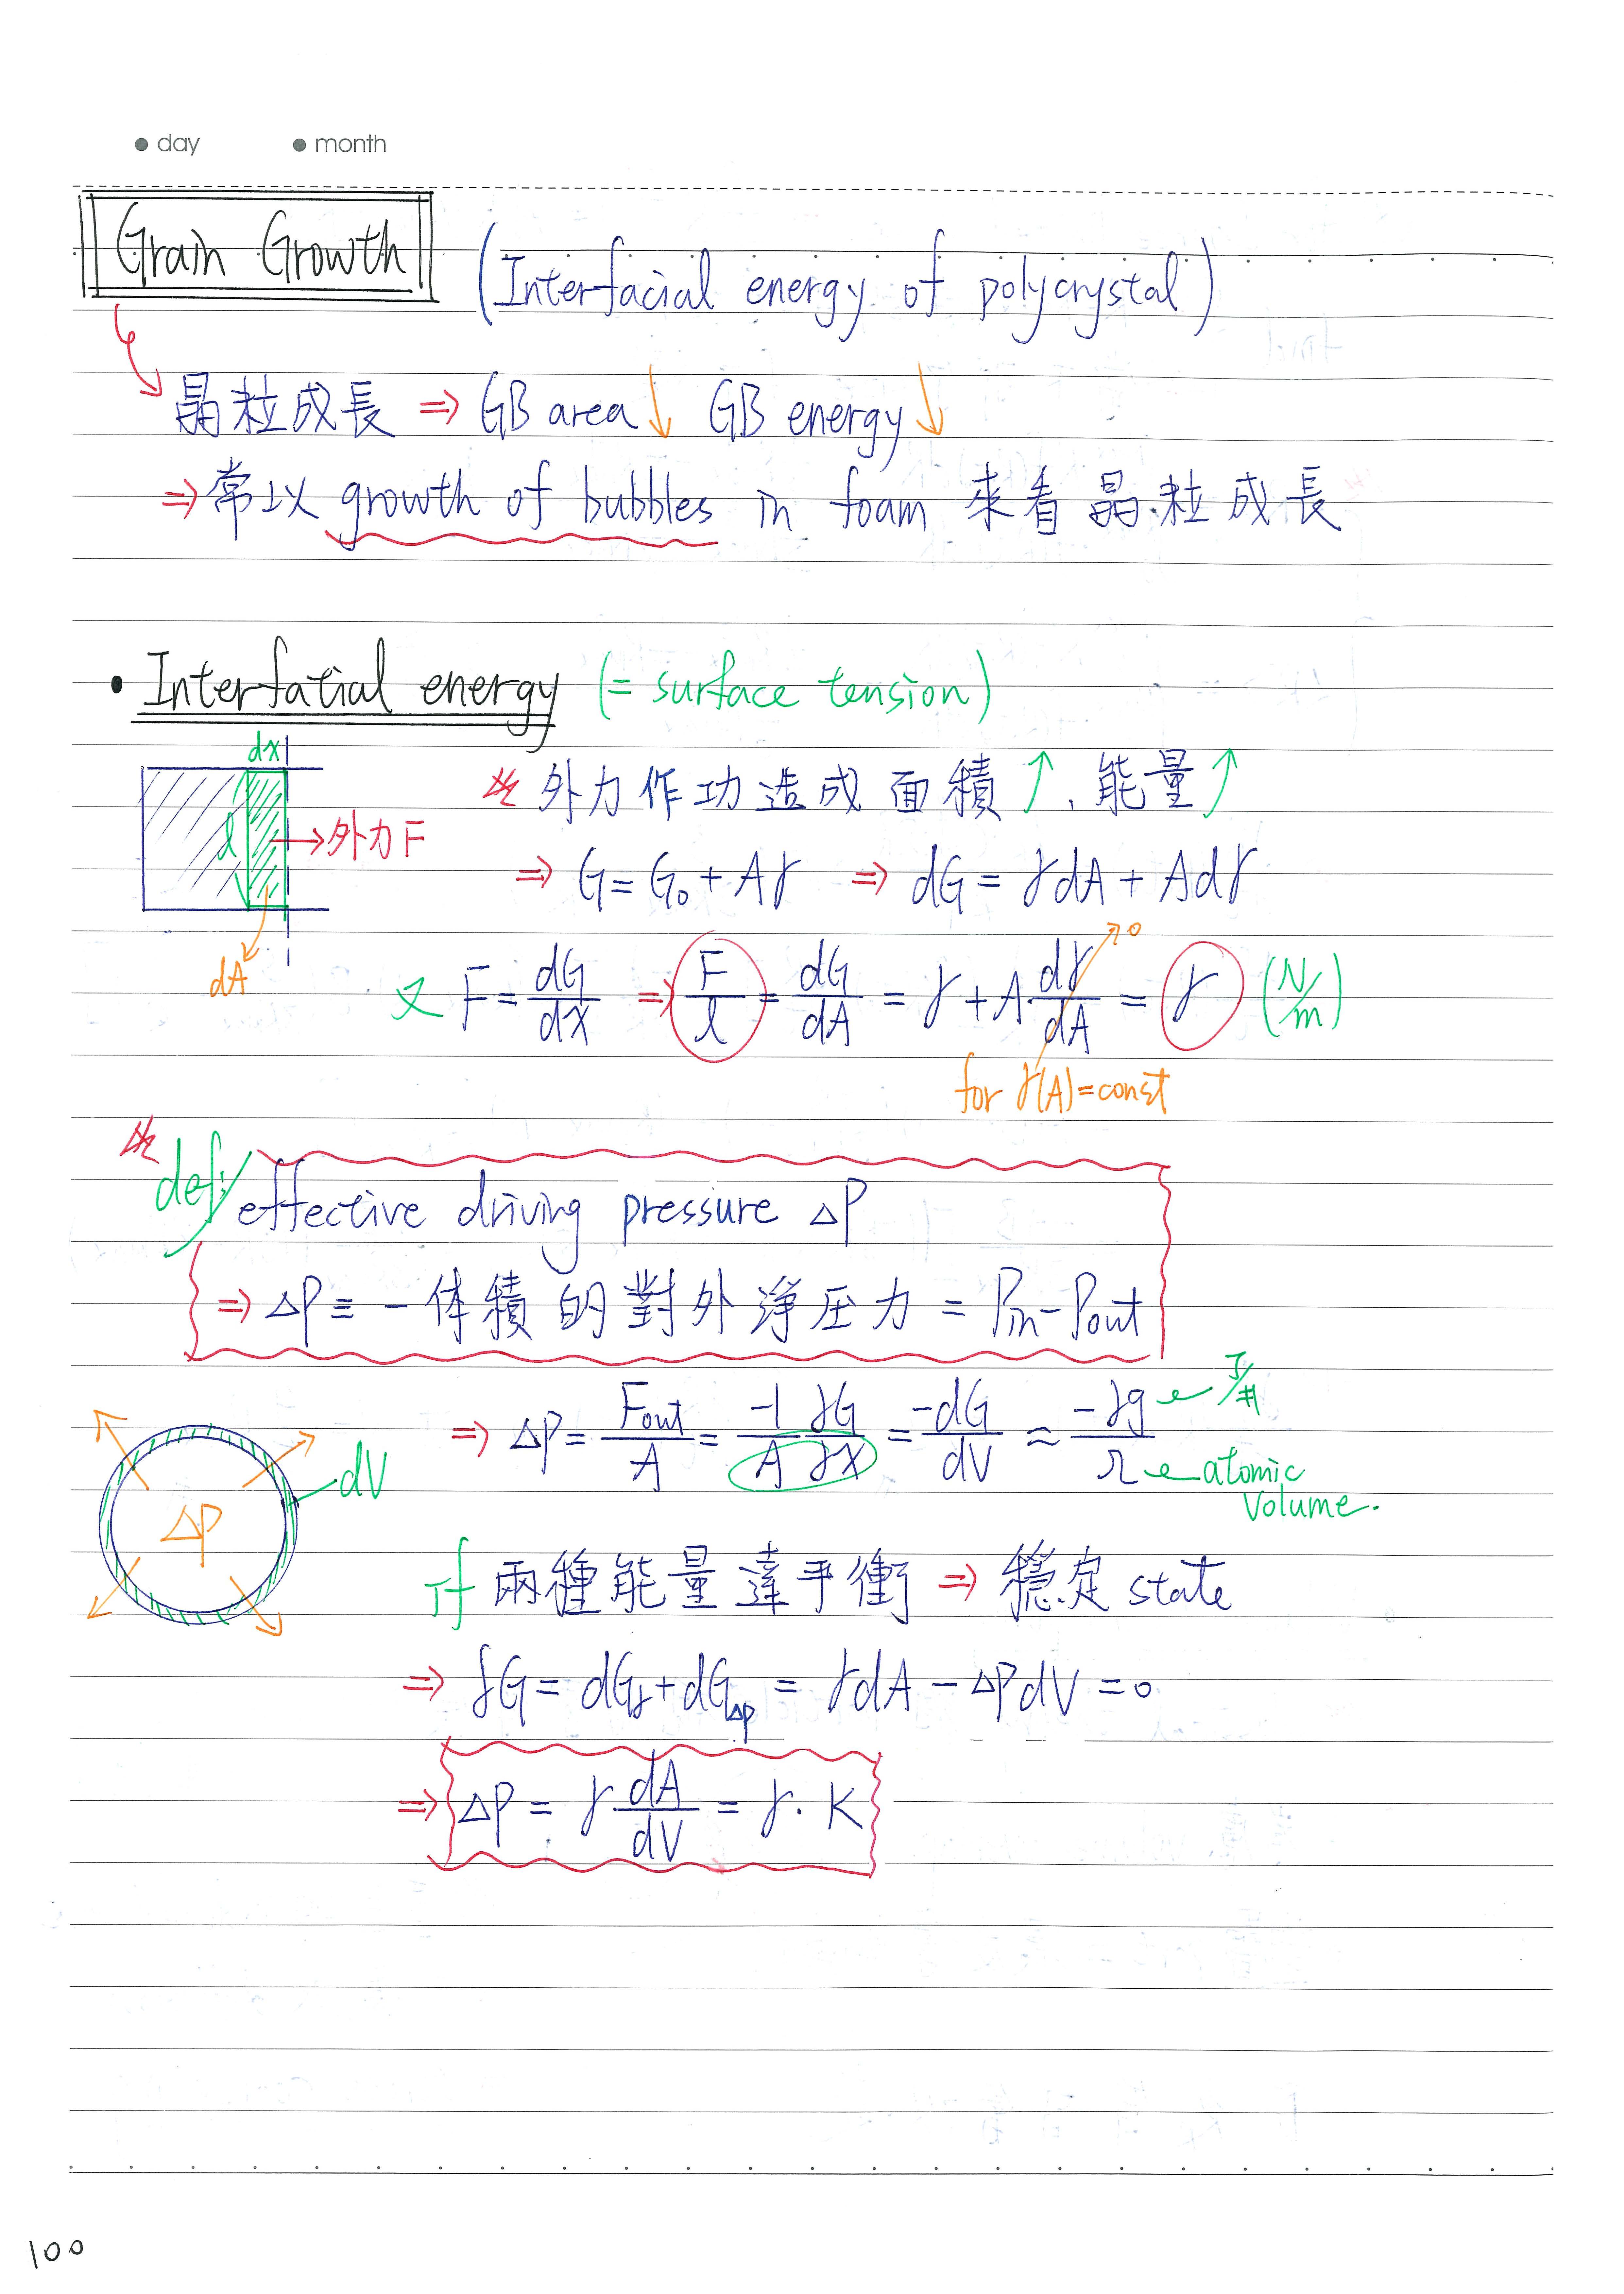 day month
Grain Growth (Interfacial energy of polycrystal)
晶粒成長 ⇒ GB area↓ GB energy↓
⇒常以 growth of bubbles in foam 來看晶粒成長
• Interfatial energy (= surface tension)
dx
l
→外力F
dA
※ 外力作功造成面積↑、能量↑
⇒ G = G₀ + Aγ ⇒ dG = γdA + Adγ
F = dG/dx ⇒ F/l = dG/dA = γ + A dγ/dA = γ (N/m)
→0
for γ(A)=const
※ def: effective driving pressure ΔP
⇒ ΔP ≡ 一体積的對外淨压力 = Pin - Pout
⇒ ΔP = Fout/A = -1/A δG/δx = -dG/dV ≈ -δg/Ω
J/#
atomic
volume.
dV
ΔP
if 兩種能量達平衡 ⇒ 穩定 state
⇒ δG = dGγ + dG ΔP = γdA - ΔPdV = 0
⇒ ΔP = γ dA/dV = γ · K
100